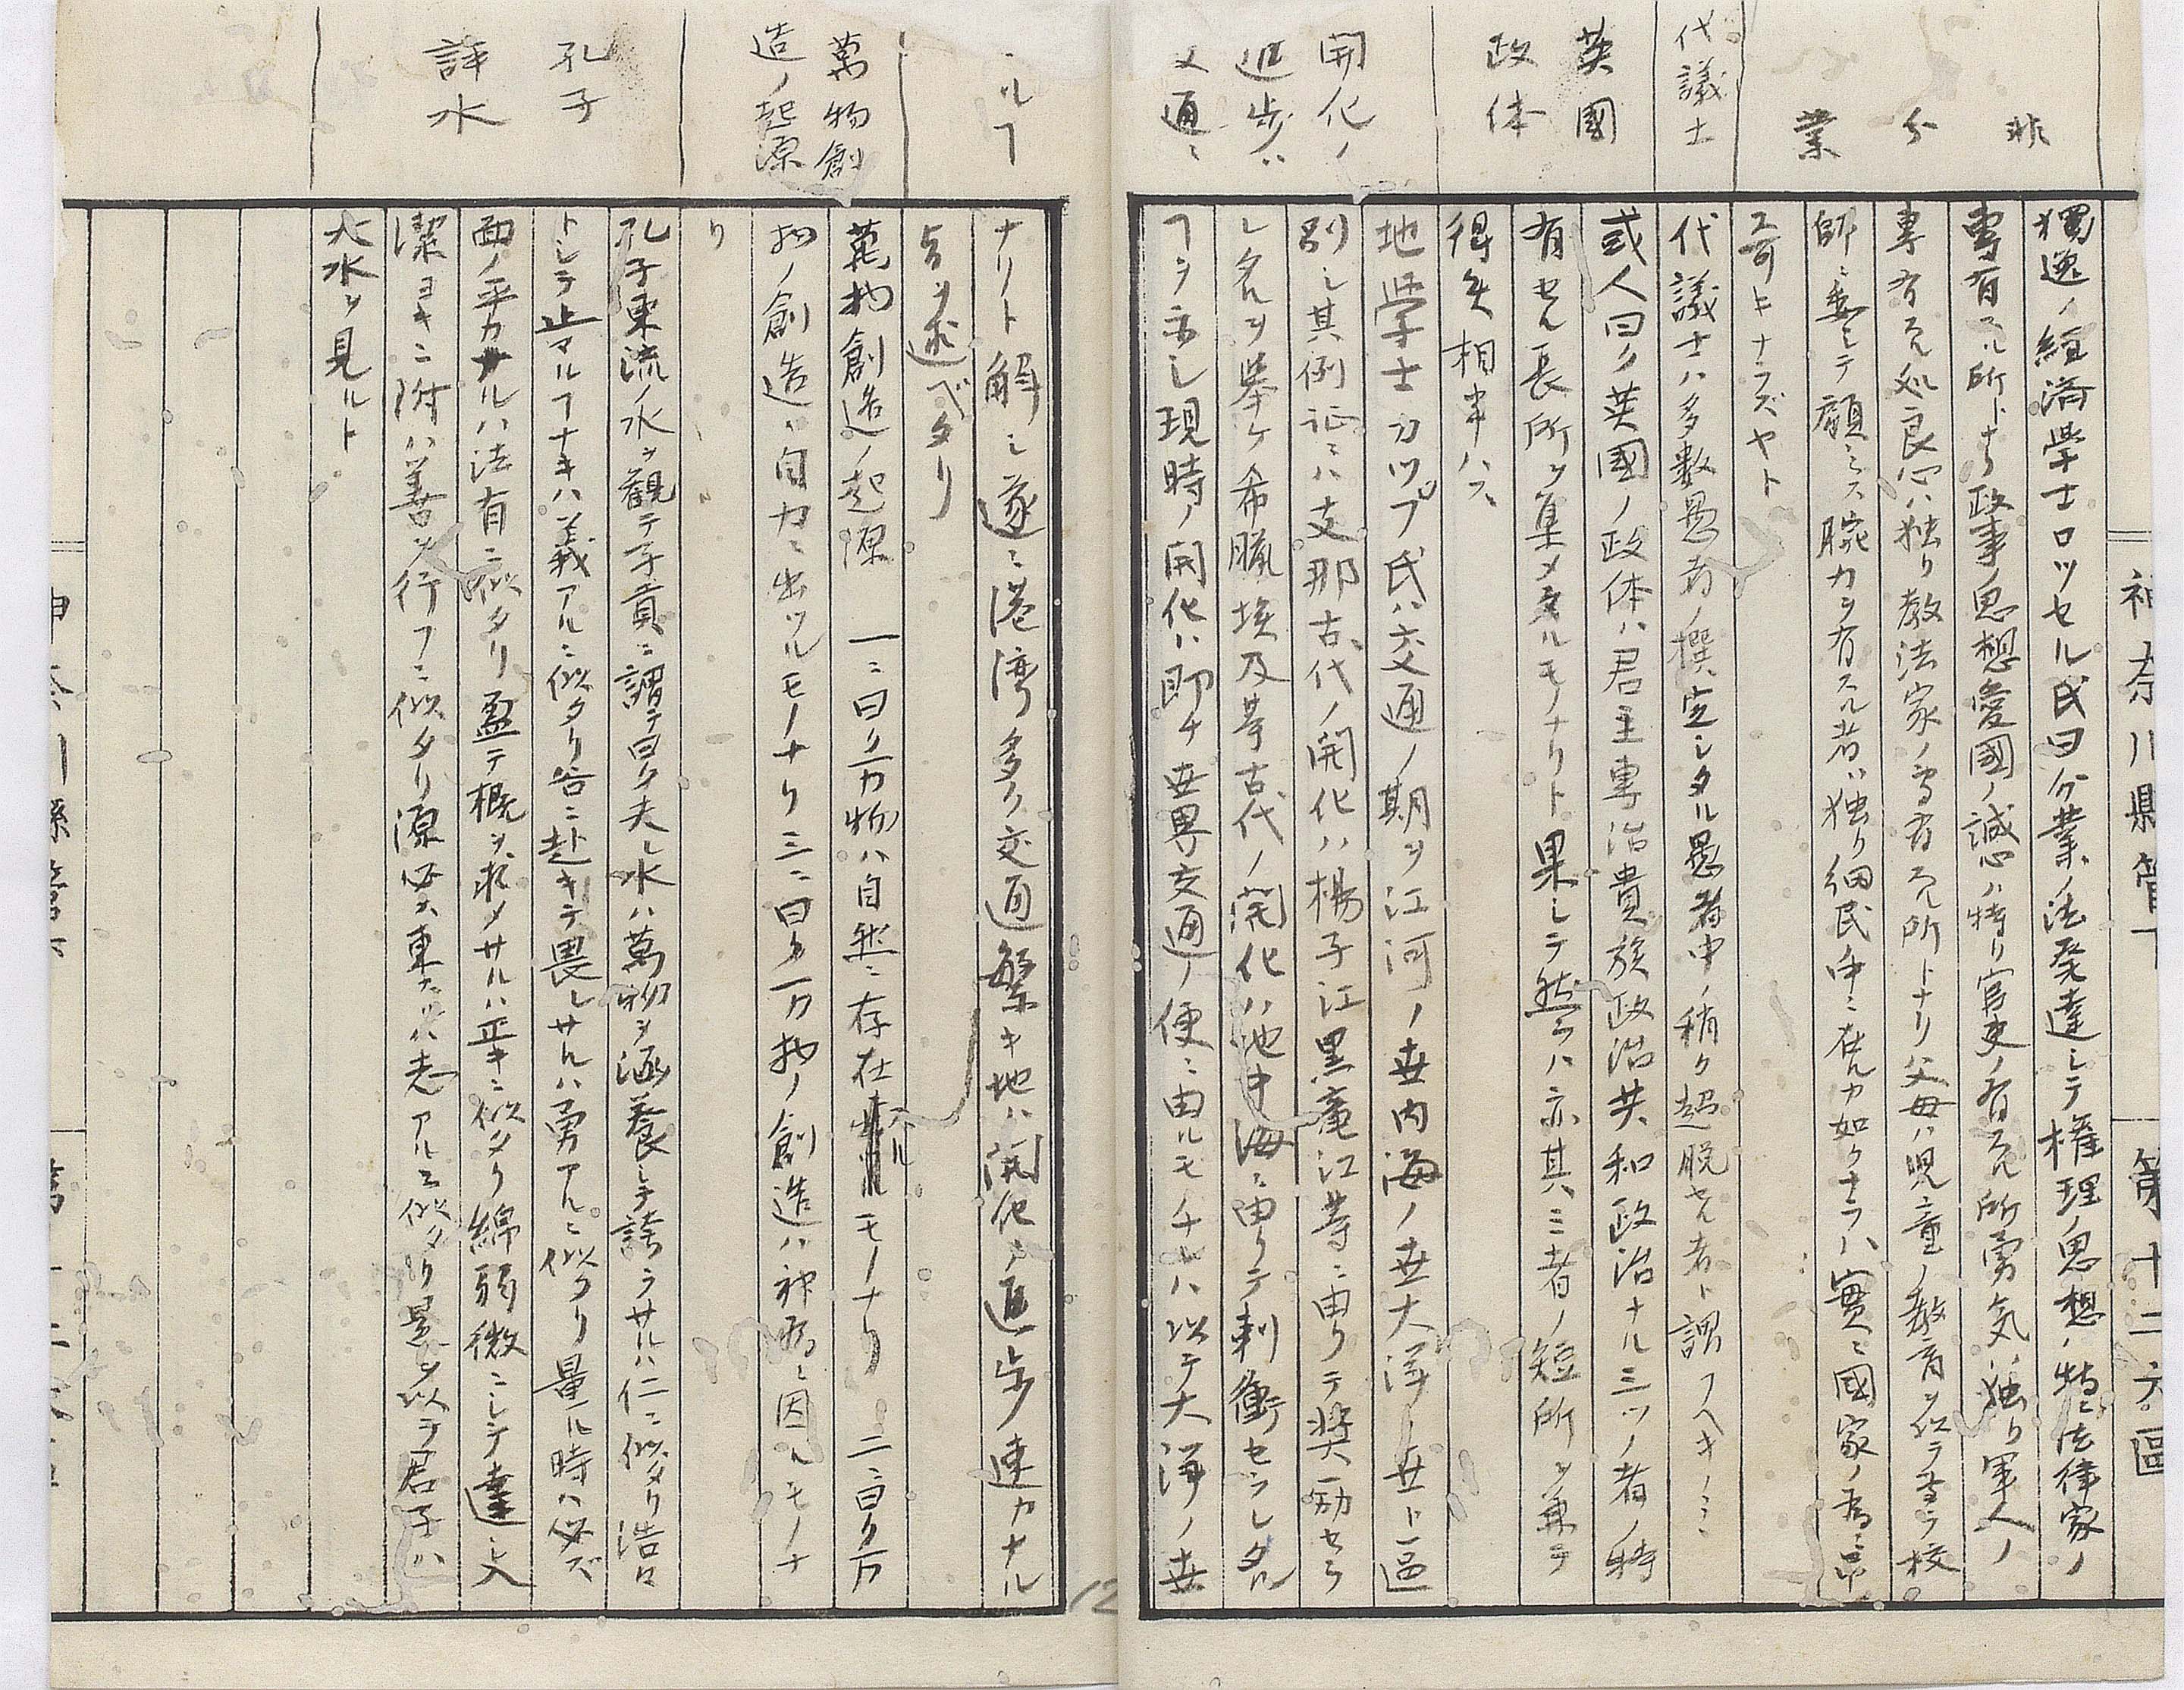 神奈川縣管下
第十二大區
非
分
業
獨逸ノ経済學士ロツセル氏曰分業ノ法発達シテ権理ノ思想ハ特ニ法律家ノ
専有スル所トナリ政事ノ思想愛國ノ誠心ハ特リ官吏ノ有スル所勇気ハ独リ軍人ノ
専有スル処良心ハ独リ教法家ノ専有スル所トナリ父母ハ児童ノ教育ヲ以テ学校
師ニ委シテ顧ミス腕力ヲ有スル者ハ独リ細民中ニ在ルカ如クナラハ實ニ國家ノ為ニ弔
ス可キナラズヤト
代議士
代議士ハ多数愚者ノ撰定シタル愚者中ノ稍ク超脱セル者ト謂フヘキノミ
英國
政体
或人曰ク英國ノ政体ハ君主専治貴族政治共和政治ナル三ツノ者ノ特
有セル長所ヲ集メタルモノナリト果シテ然ラハ亦其三者ノ短所ヲ兼テ
得失相半ハス
開化ノ
進歩ハ
交通ニ
地学士カツプ氏ハ交通ノ期ヲ江河ノ世内海ノ世大洋ノ世ト區
別シ其例証ニハ支那古代ノ開化ハ楊子江黒竜江等ニ由リテ奨励セラ
レ名ヲ挙ケ希臘埃及等古代ノ開化ハ地中海ニ由リテ刺衝セラレタル
ヿヲ示シ現時ノ開化ハ即チ世界交通ノ便ニ由ルモノナレハ以テ大洋ノ世
ルヿ
ナリト解シ遂ニ港湾多ク交通繁キ地ハ開化ノ進歩速カナル
ヿヲ述ベタリ
萬物創
造ノ起源
萬物創造ノ起源 一ニ曰ク万物ハ自然ニ存在スルモノナリ 二ニ曰ク万
物ノ創造ハ自力ニ出ツルモノナリ三ニ曰ク万物ノ創造ハ神為ニ因ルモノナ
リ
孔子
評水
孔子東流ノ水ヲ観テ子貢ニ謂テ曰ク夫レ水ハ萬物ヲ涵養シテ誇ラサルハ仁ニ似タリ浩々
トシテ止マルヿナキハ義アルニ似タリ谷ニ赴キテ畏レサルハ勇アルニ似タリ量ル時ハ必ズ
面ノ平カナルハ法有ニ似タリ盈テ概ヲ求メサルハ正キニ似タリ綿弱微ニシテ達シ入
潔ヨキニ附ハ善ヲ行フニ似タリ源必ス東スルハ志アルニ似タリ是ヲ以テ君子ハ
大水ヲ見ルト
12